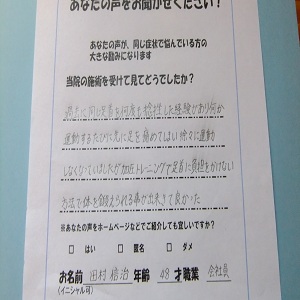 あなたの声をお聞かせください!
あなたの声が、同じ症状で悩んでいる方の
大きな励みになります
当院の施術を受けて見てどうでしたか?
過去に同じ足首を何度も捻挫した経験があり何か
運動するたびに先に足を痛めてしまい徐々に運動
しなくなっていましたが加圧トレーニングで足首に負担をかけない
方法で体を鍛えられる事が出来きて良かった
※あなたの声をホームページなどでご紹介しても宜しいですか?
□ はい □ 匿名 □ ダメ
お名前 田村 信治 年齢 48 才職業 会社員
(イニシャル可)